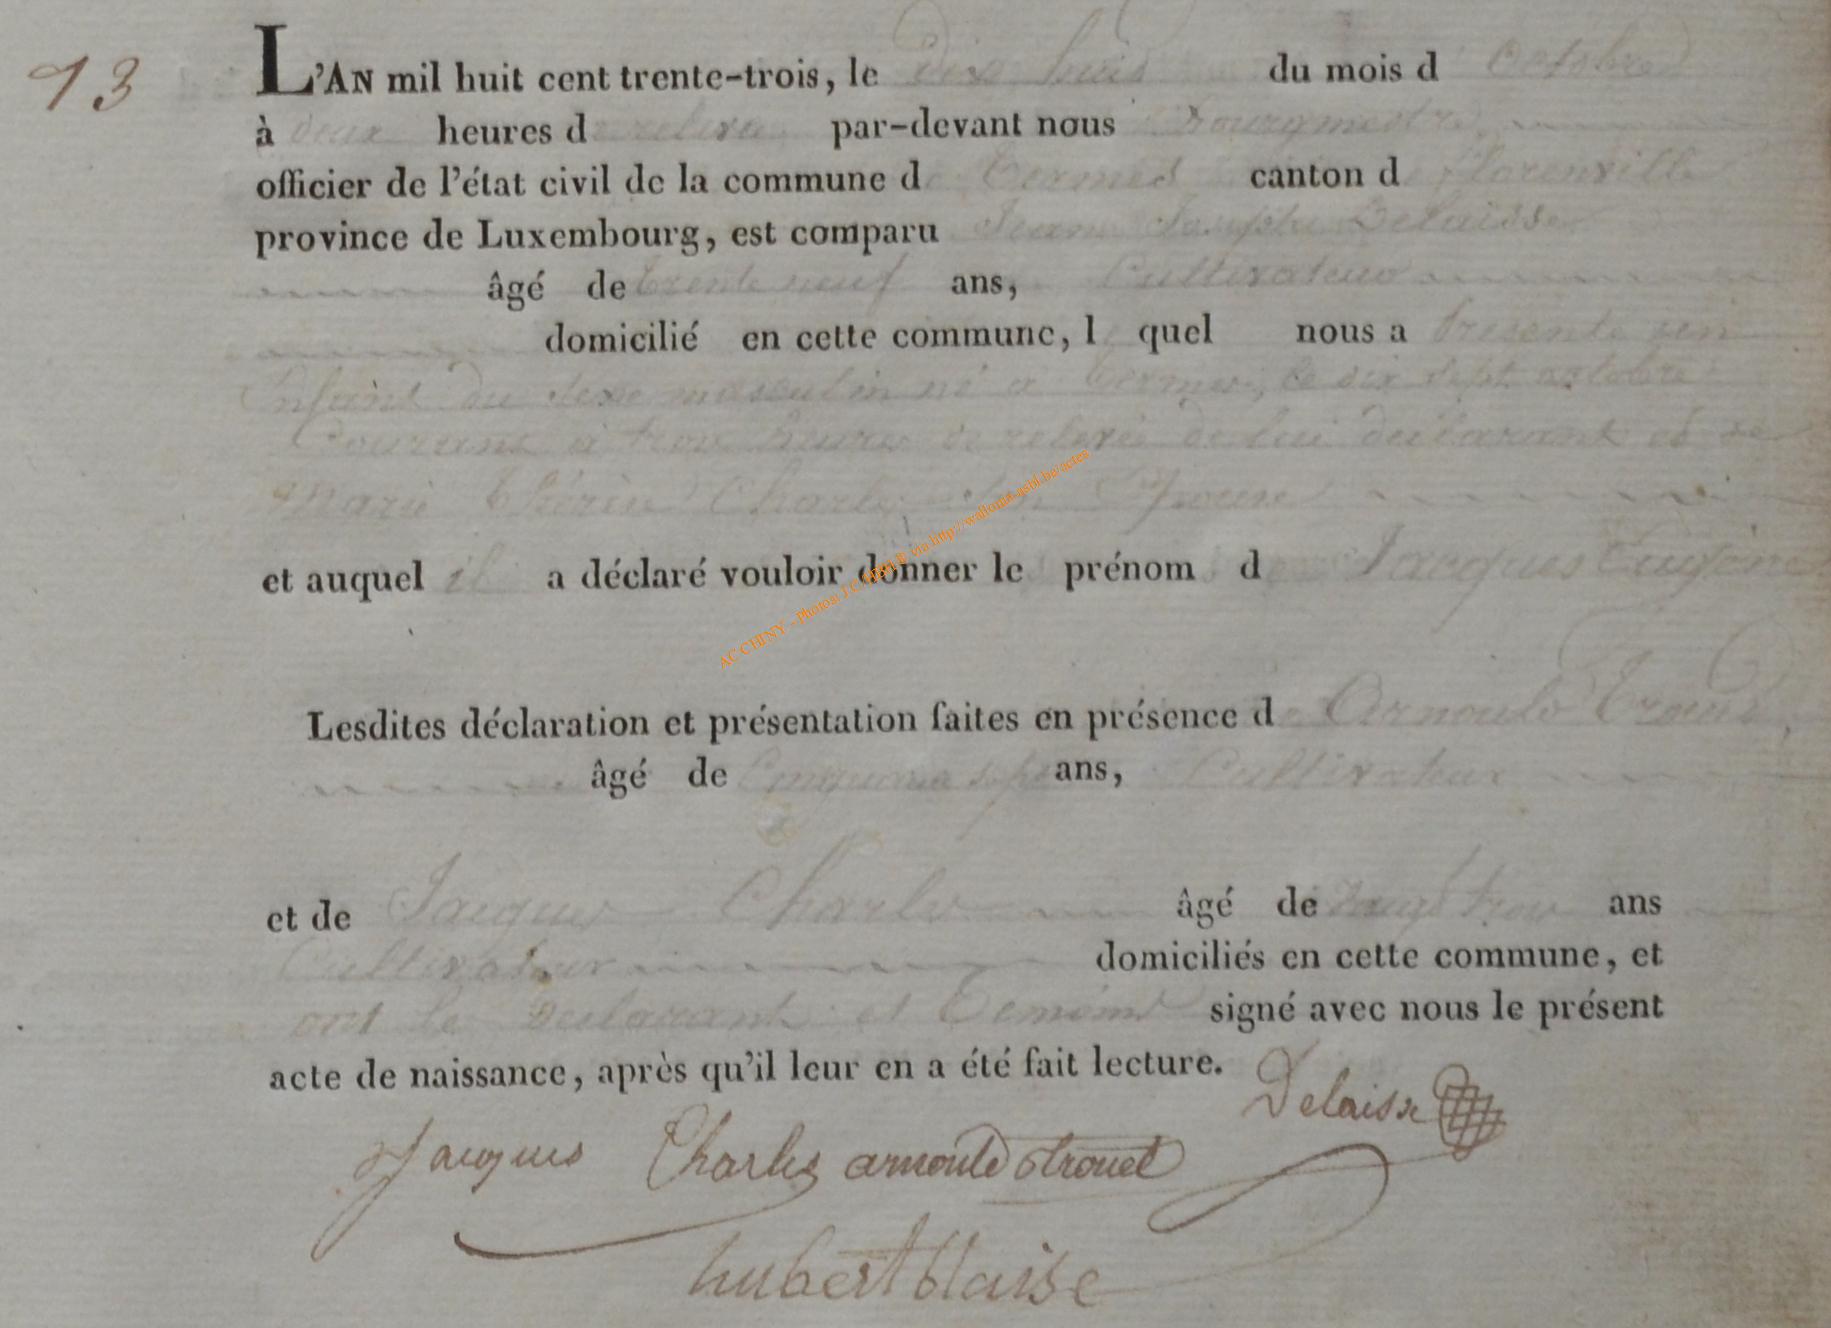 13
L'AN mil huit cent trente-trois, le dix huit du mois d Octobre
à deux heures d e relevée par-devant nous Bourgmestre
officier de l'état civil de la commune d e Termes canton d e florenville
province de Luxembourg, est comparu Jean Joseph Delaisse
âgé de trente neuf ans, Cultivateur
domicilié en cette commune, l quel nous a presenté un
Enfant du sexe masculin né a Termes, le dix sept octobre
Courant à trois heures de relevée de lui declarant et de
Marie Thérèse Charles son Epouse
et auquel il a déclaré vouloir donner le prénom d e Jacques Eugène
Lesdites déclaration et présentation faites en présence d e Arnould Trouet,
âgé de Cinquante sept ans, Cultivateur
et de Jacques Charles âgé de trois ans
Cultivateur domiciliés en cette commune, et
ont le declarant et Temoins signé avec nous le présent
acte de naissance, après qu'il leur en a été fait lecture.
Delaisse
Jacques Charles arnould trouet
hubert blaise
AC CHINY - Photos: J.C. via http://wallonia-asbl.be/actes